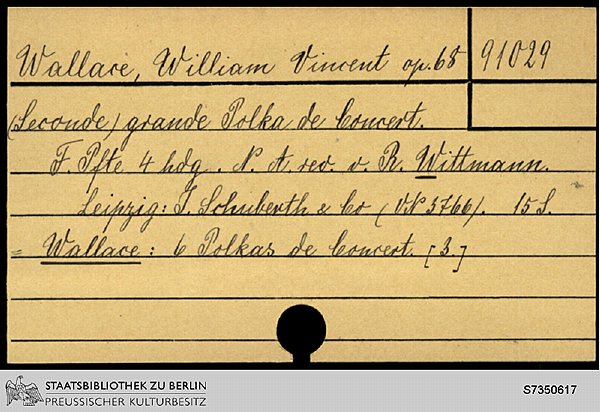 Wallace, William Vincent op. 68 91029
(Seconde) grande Polka de Concert.
F. Pfte 4 hdg. N. A. rev. v. R. Wittmann.
Leipzig: J. Schuberth & Co (VN 3766). 15 S.
= Wallace: 6 Polkas de Concert. [3.]
STAATSBIBLIOTHEK ZU BERLIN
PREUSSISCHER KULTURBESITZ
S7350617